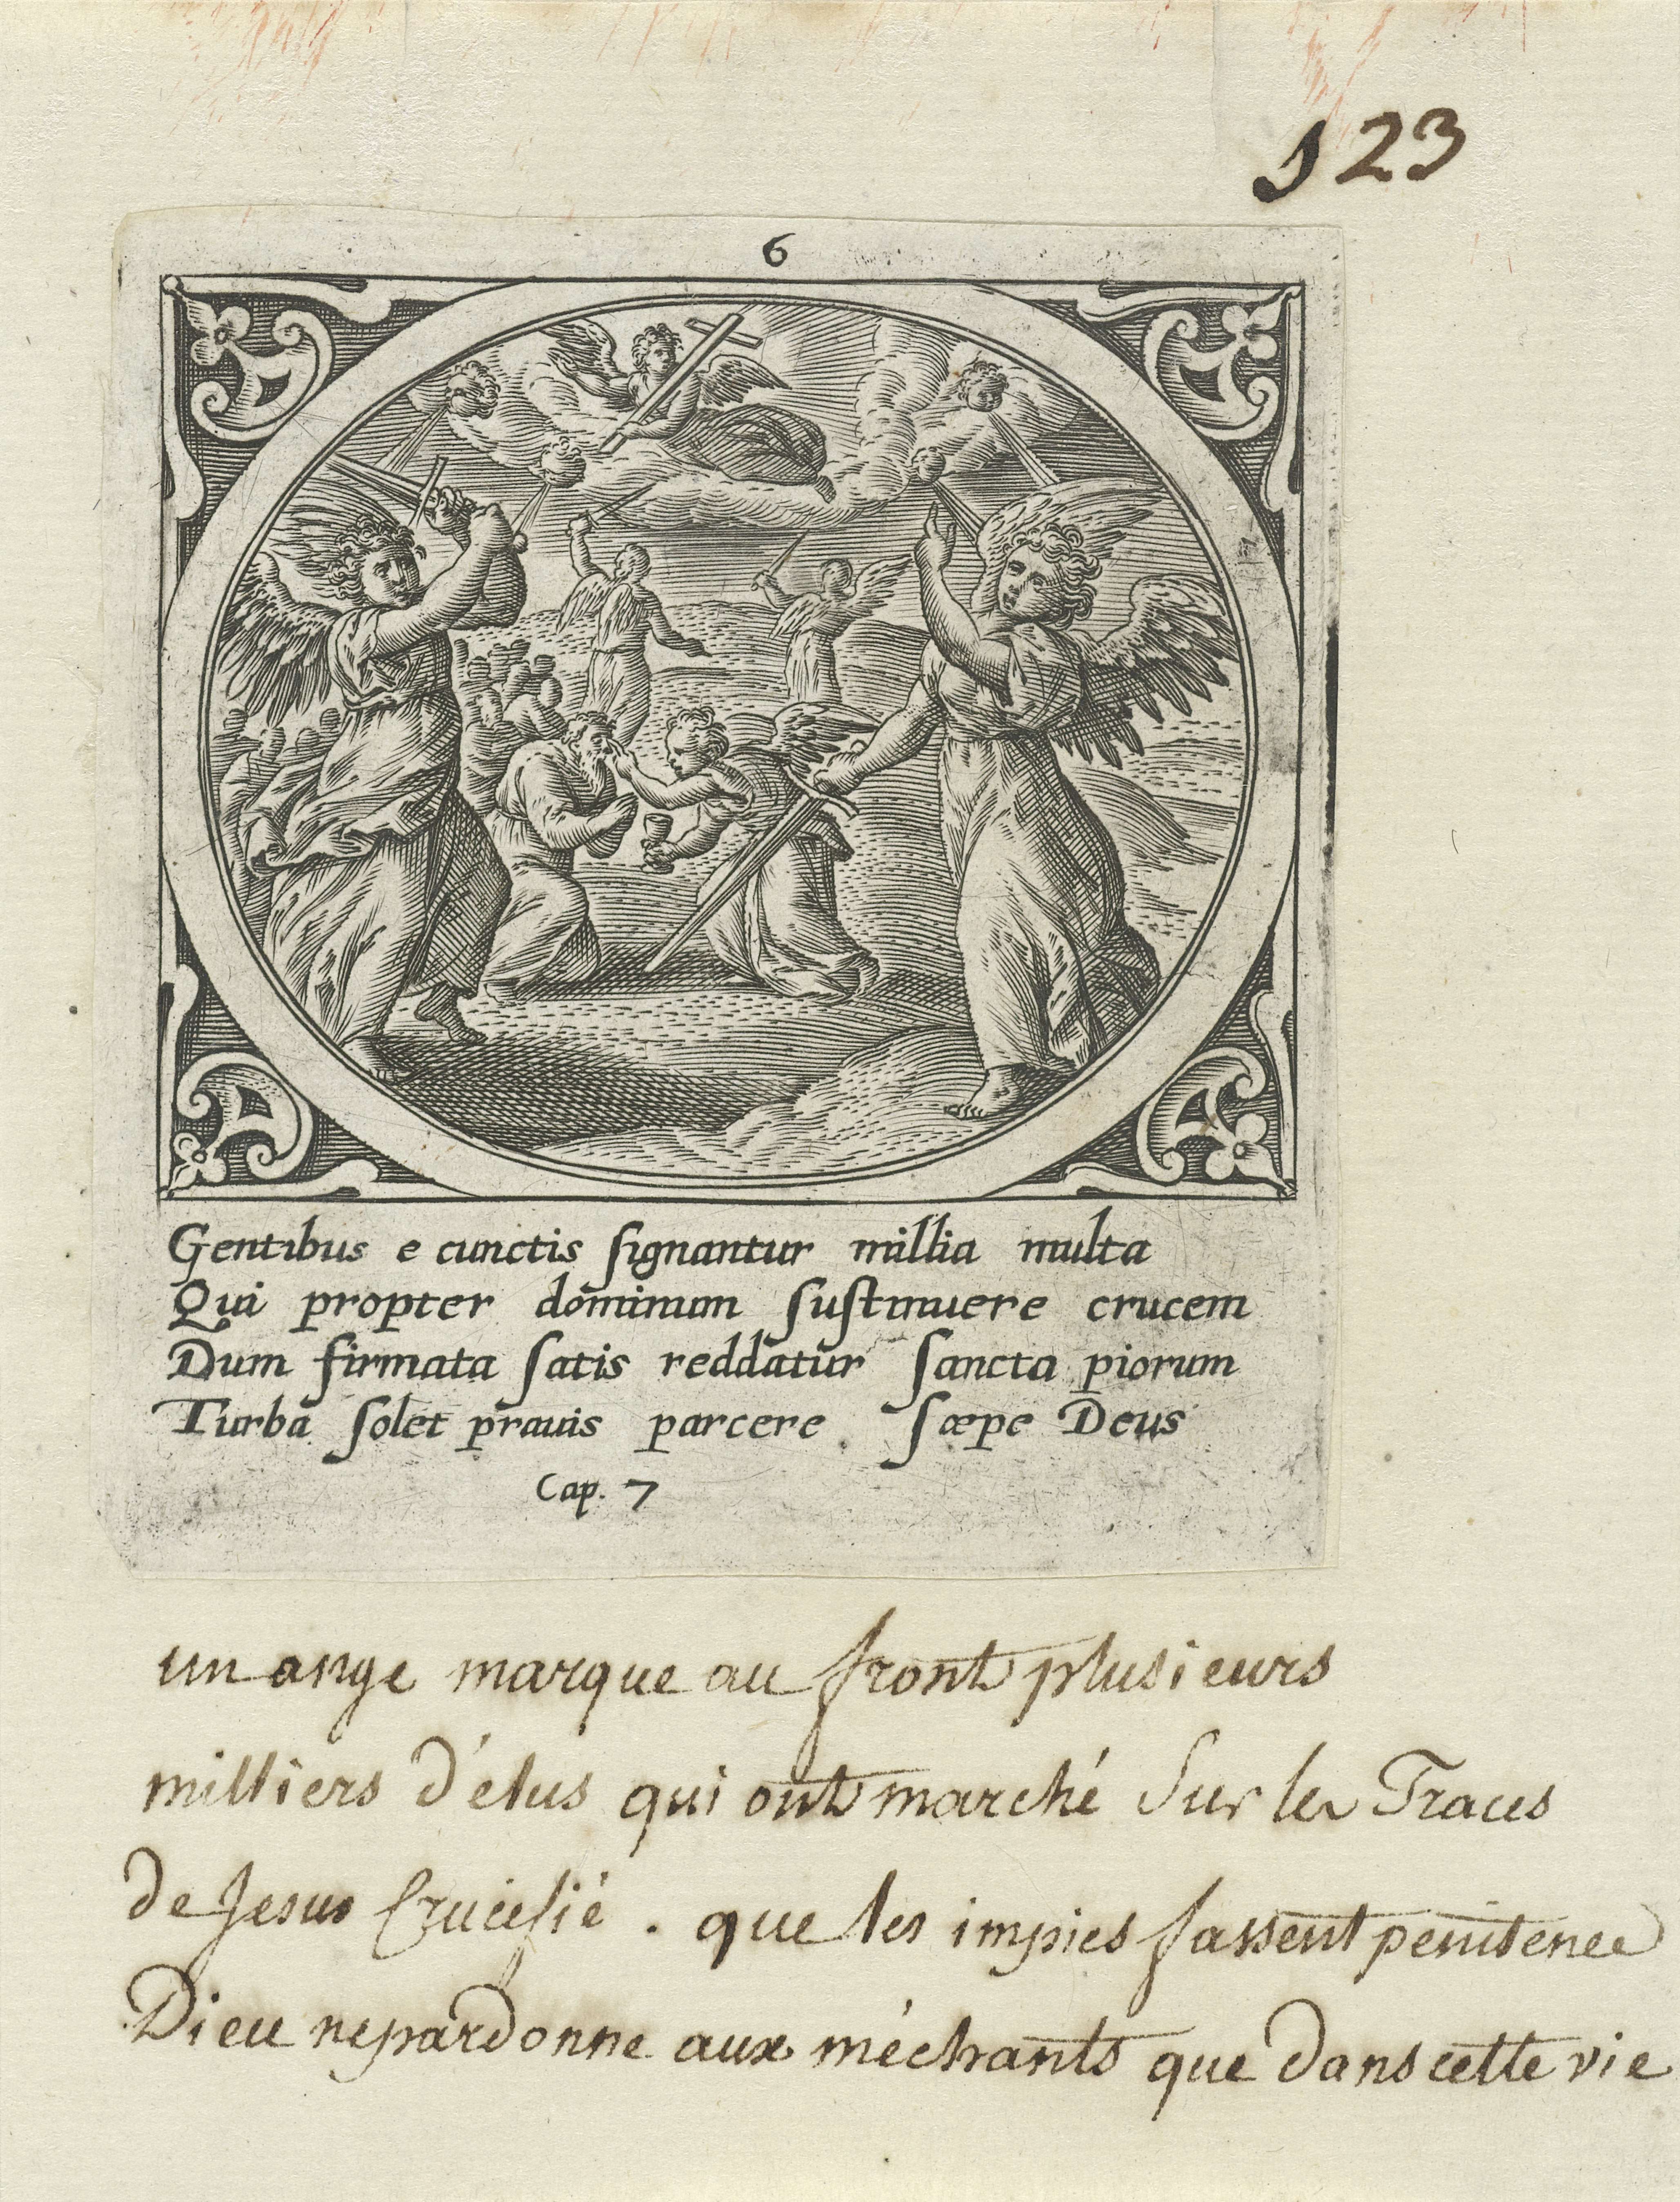 123
6
Gentibus e cunctis signantur millia multa
Qui propter dominum sustinuere crucem
Dum firmata satis reddatur sancta piorum
Turba solet prauis parcere sæpe Deus
Cap. 7
un ange marque au front plusieurs
milliers d'élus qui ont marché sur les Traces
de Jesus Crucifié . que les impies fassent penitence
Dieu ne pardonne aux méchants que dans cette vie